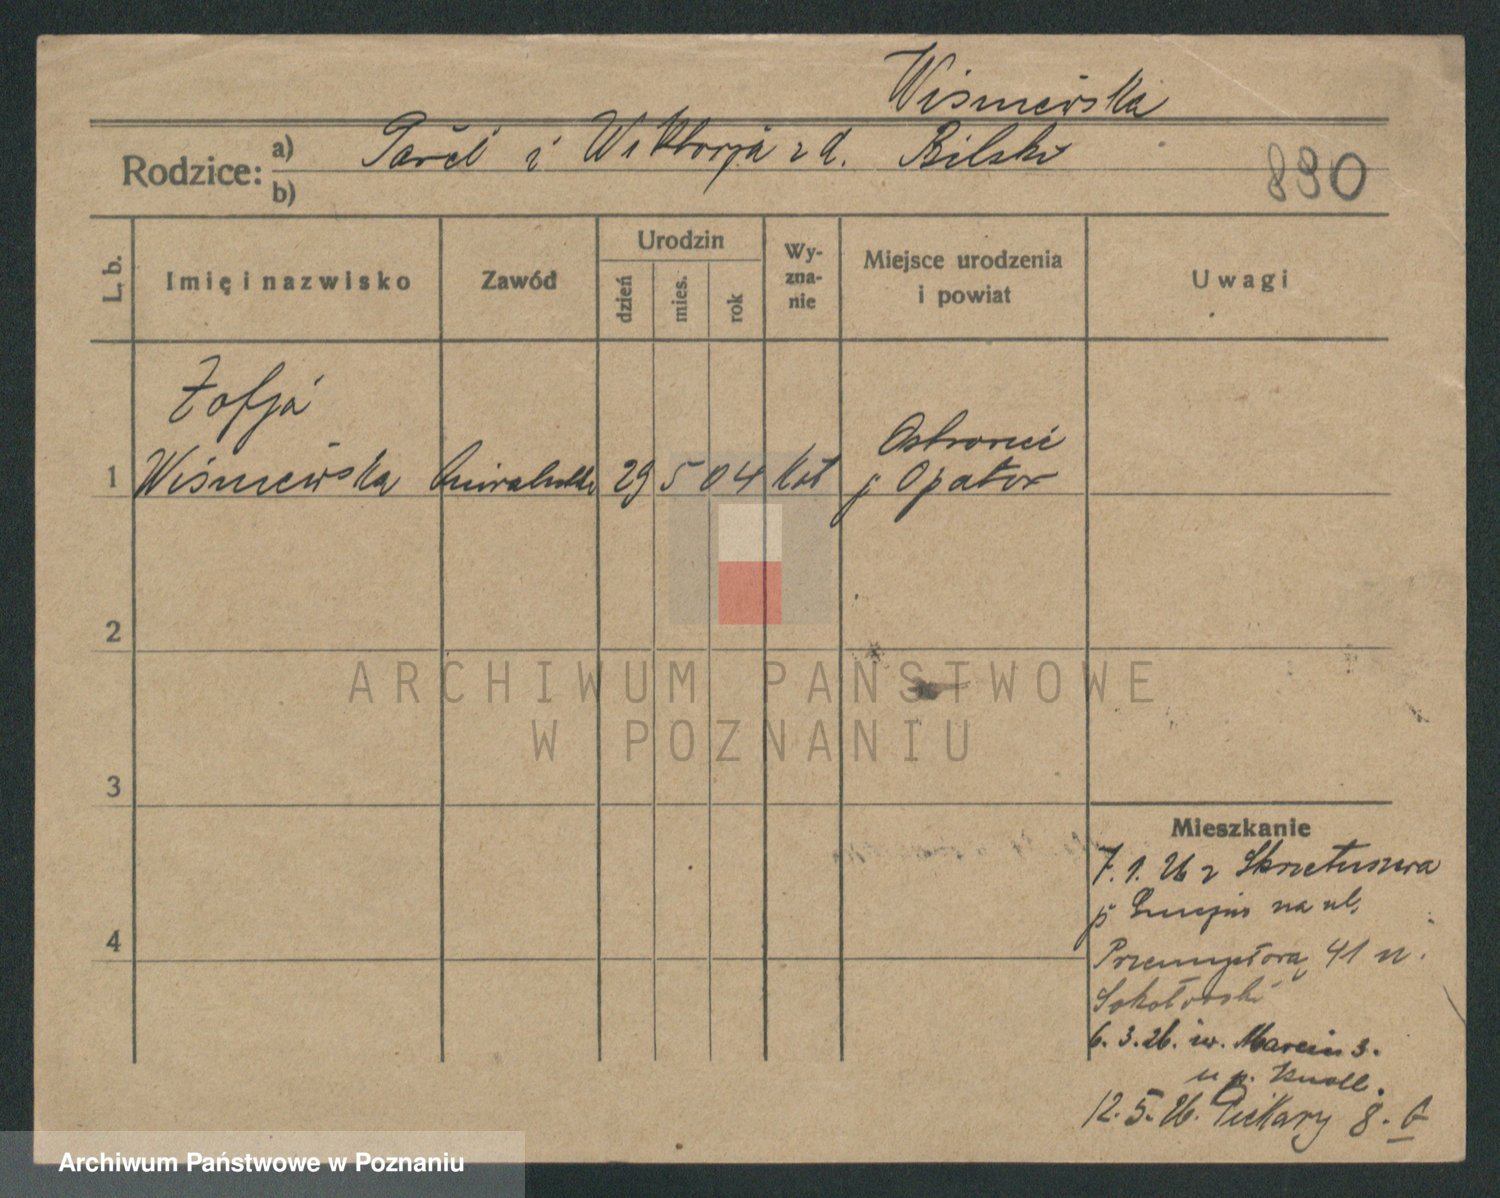 Wiśniewska
Rodzice: a) Paweł i Wiktorja z d. Bilska
b)
890
L. b.
Imię i nazwisko
Zawód
Urodzin
dzień
mies.
rok
Wy-
zna-
nie
Miejsce urodzenia
i powiat
Uwagi
Zofja
1 Wiśniewska 29 5 04 kat Ostrowiec
p Opatow
2
3
4
ARCHIWUM PAŃSTWOWE
W POZNANIU
Mieszkanie
7.1.26 z Skrzetuszewa
p na ul.
Przemysłową 41 u.
Sokołowski
6.3.26. św. Marcin 3.
u p. Knoll.
12.5.26. Piekary 8.
Archiwum Państwowe w Poznaniu